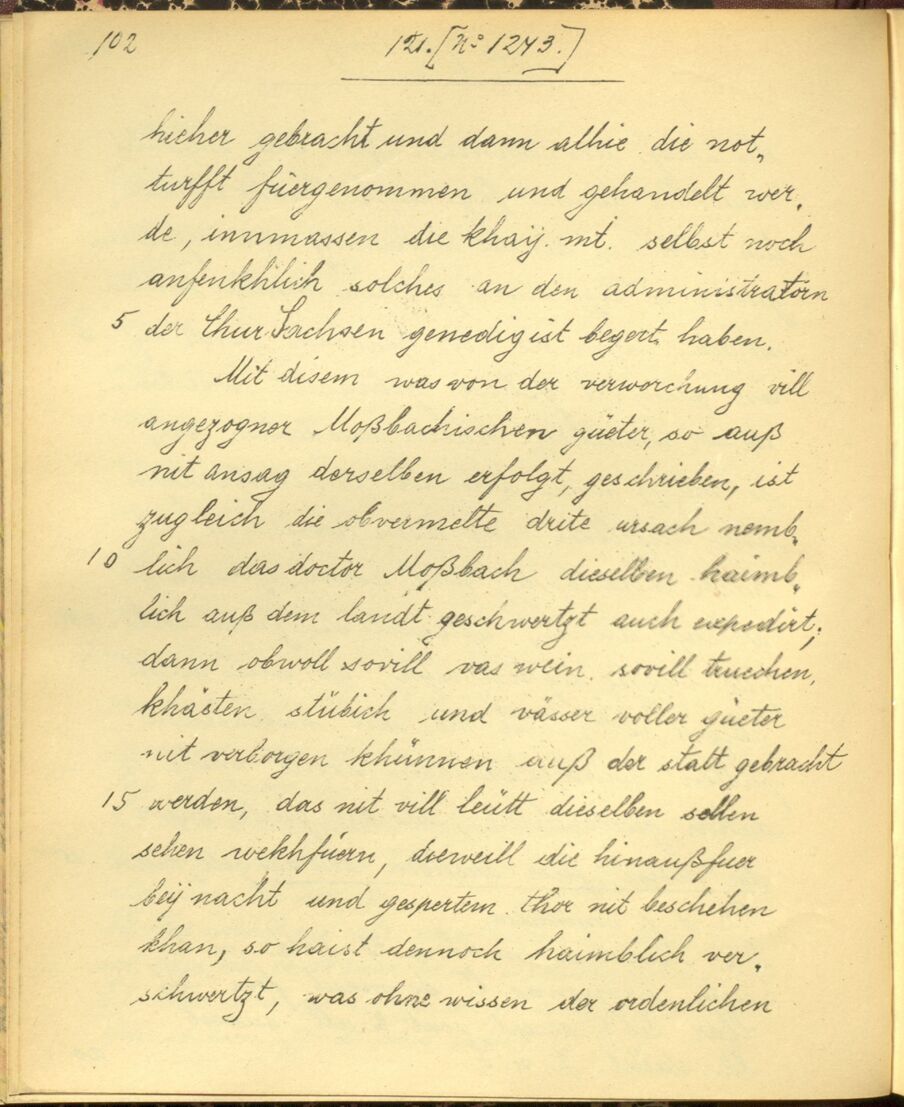 102
121. [No 1243.]
hieher gebracht und dann alhie die not„
turfft füergenommen und gehandelt wer„
de, innmassen die khaÿ. mt. selbst noch
anfenkhlich solches an den administratorn
5 der Chur Sachsen genedigist begert haben.
Mit disem was von der verworchung vill
angezogner Moßbachischen güeter, so auß
nit ansag derselben erfolgt, geschrieben, ist
zugleich die obvermelte drite ursach nemb„
10 lich das doctor Moßbach dieselben haimb„
lich auß dem landt geschwertzt auch expedirt;
dann obwoll sovill vas wein, sovill truechen,
khästen, stübich und vässer voller güeter
nit verborgen khünnen auß der statt gebracht
15 werden, das nit vill leütt dieselben sollen
sehen wekhfüern, dieweill die hinaußfuer
beÿ nacht und gespertem thor nit beschehen
khan, so haist dennoch haimblich ver„
schwertzt, was ohne wissen der ordenlichen